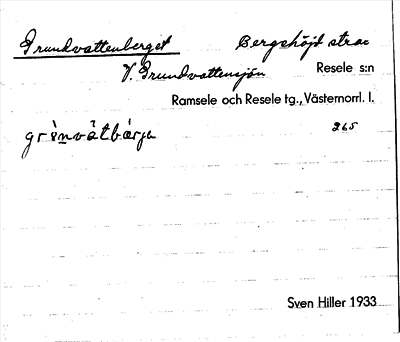 Grundvattenberget Bergshöjd strax
V. Grundvattensjön Resele s:n
Ramsele och Resele tg., Västernorrl. l.
265
Sven Hiller 1933